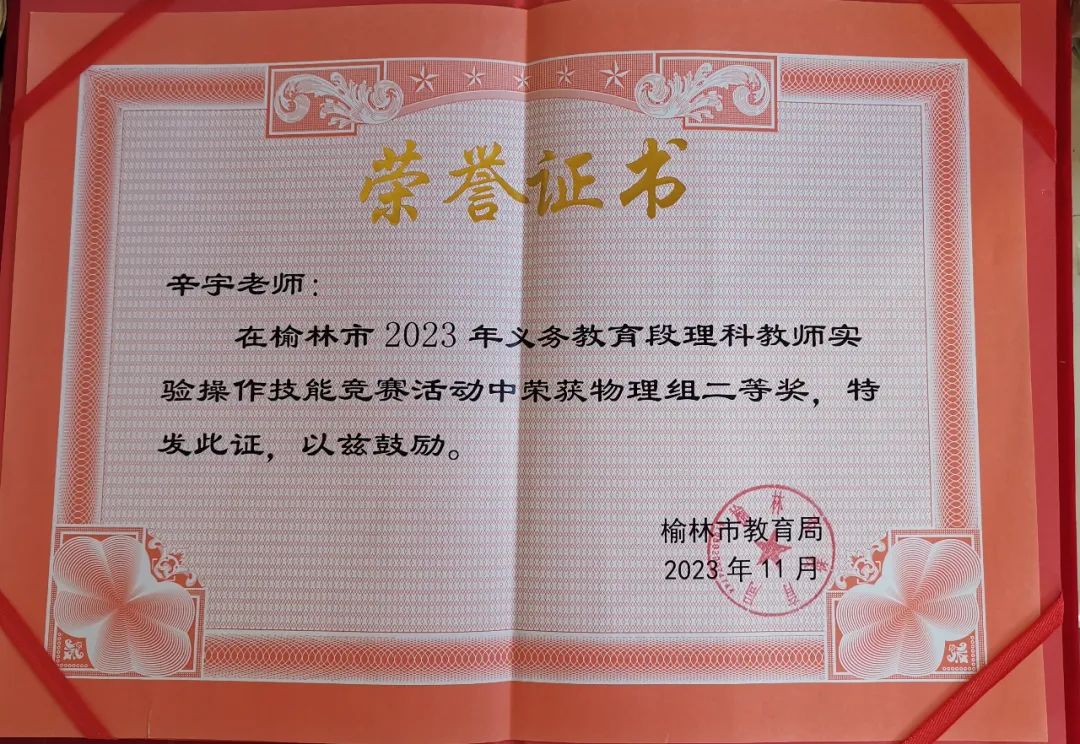 荣誉证书
辛宇老师：
在榆林市2023年义务教育段理科教师实
验操作技能竞赛活动中荣获物理组二等奖，特
发此证，以兹鼓励。
榆林市教育局
2023年11月